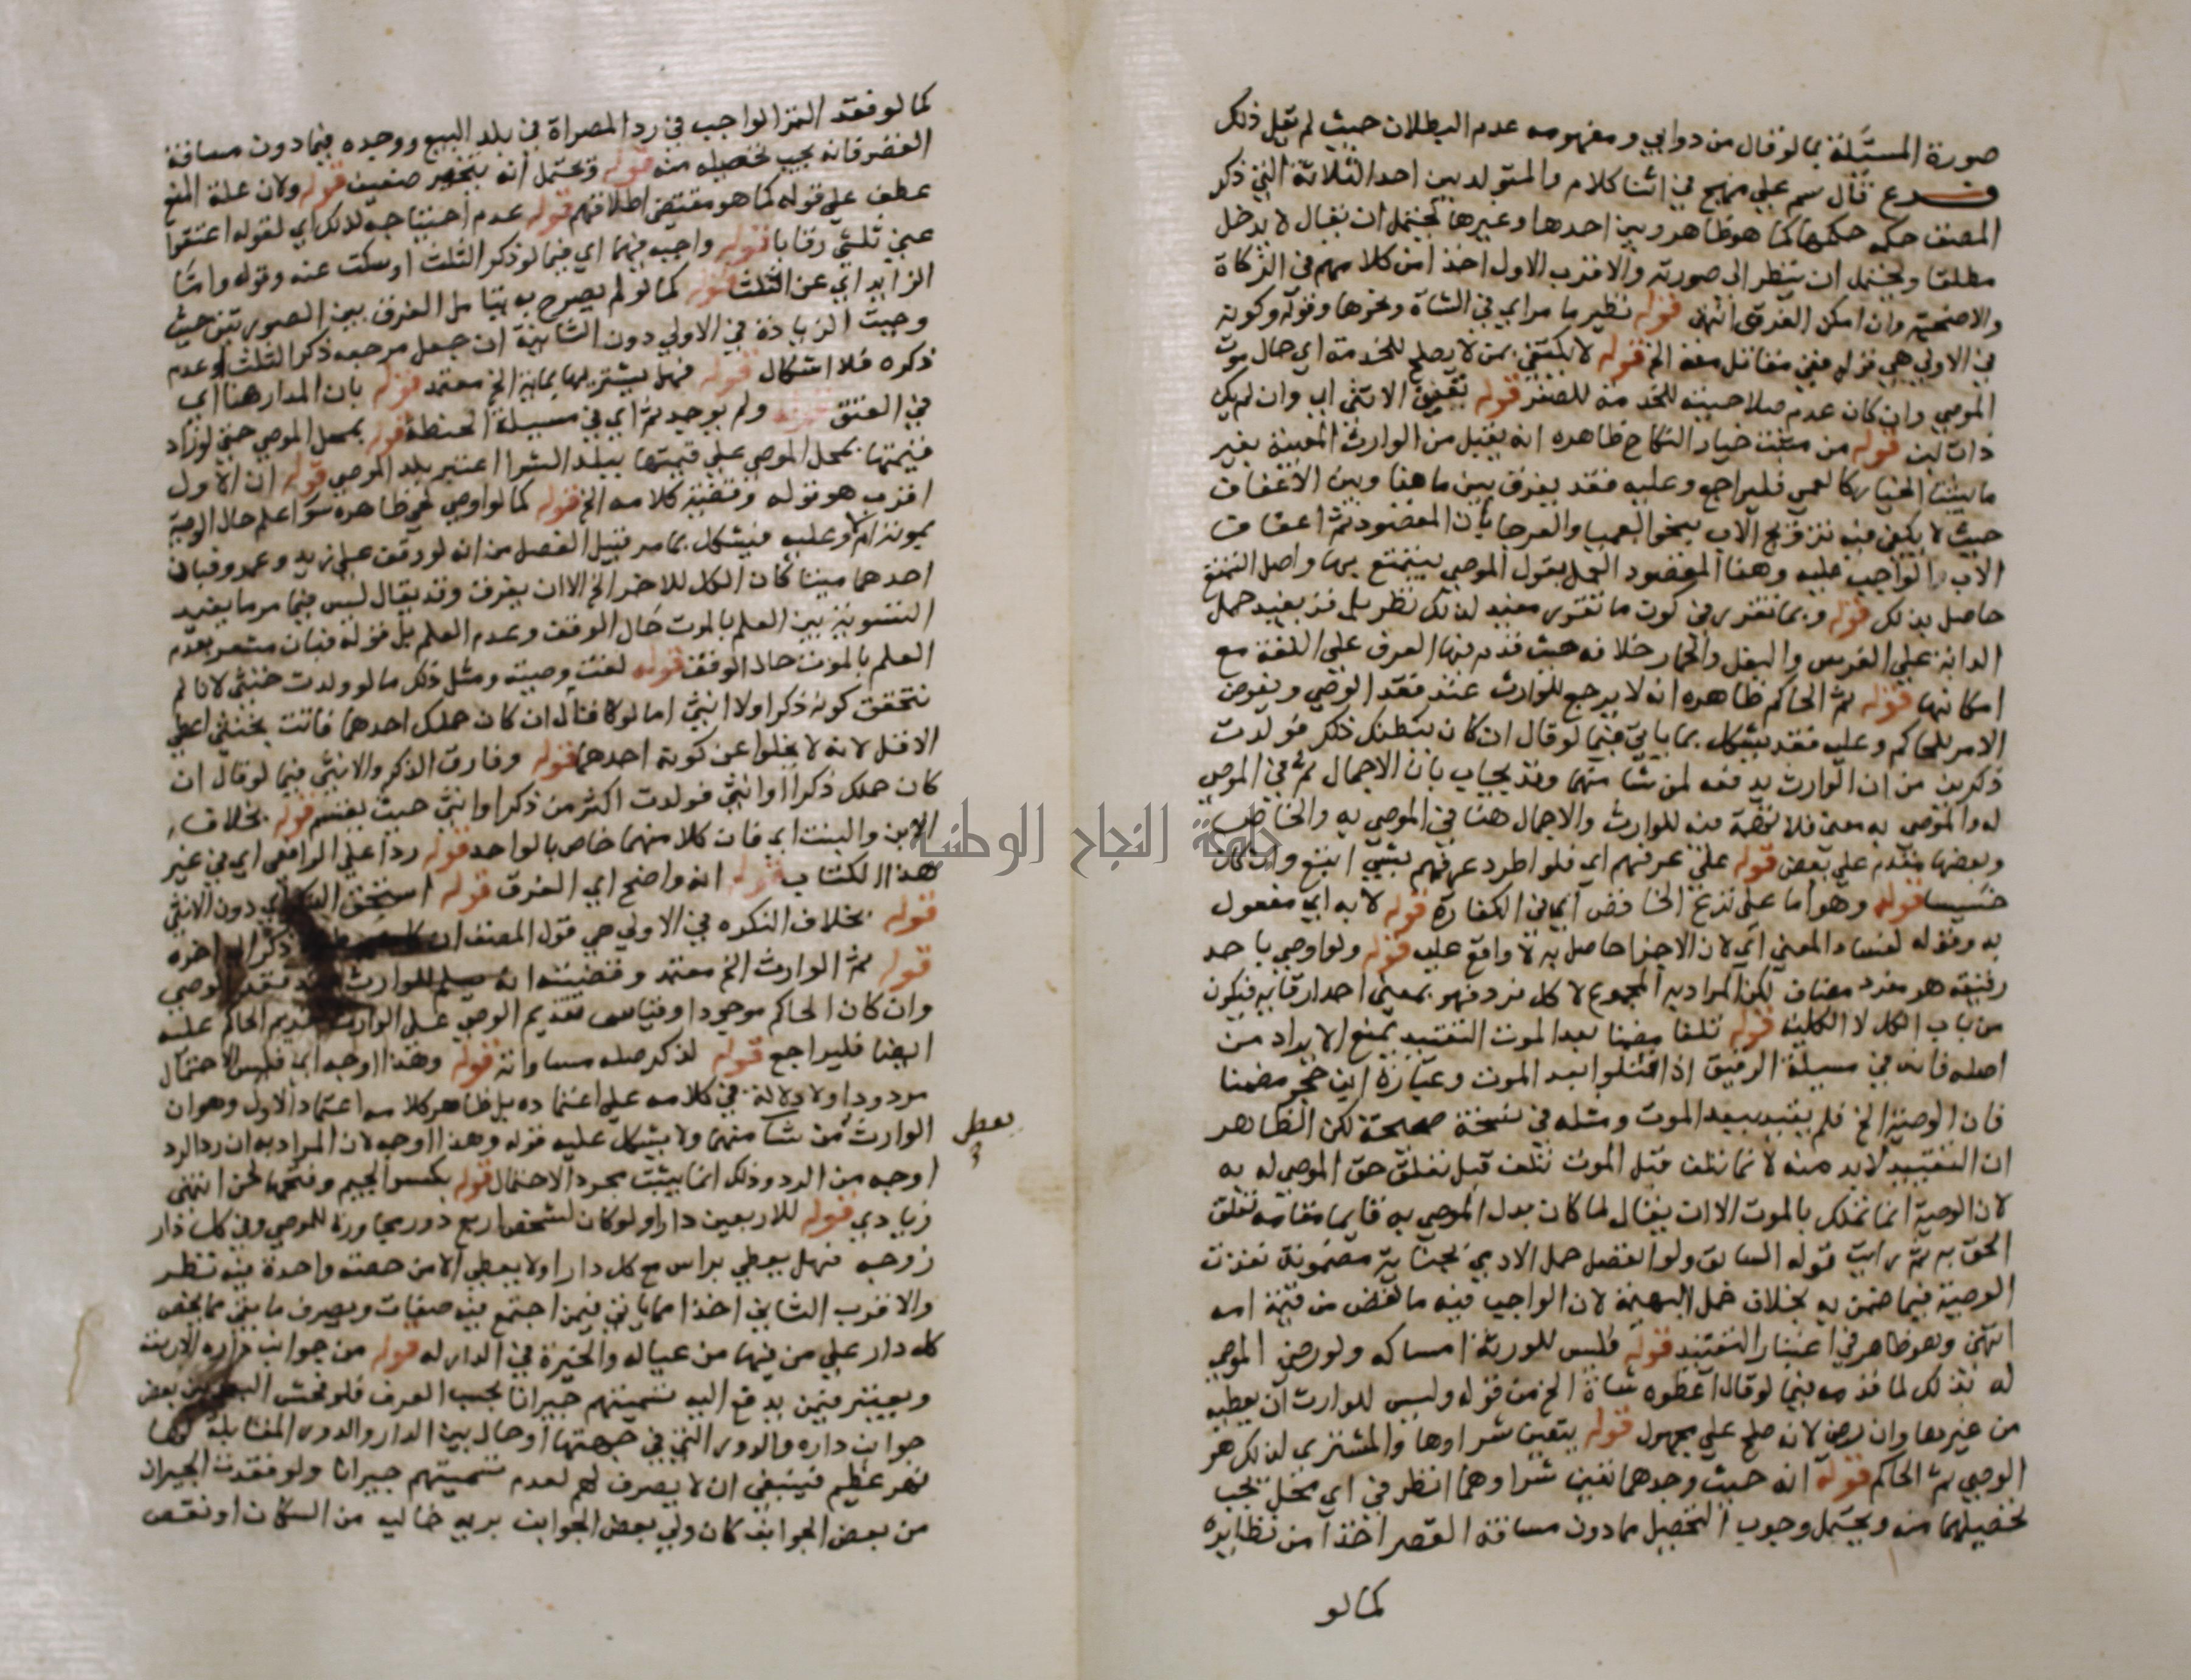 صورة المسئلة بما لو قال من دوابي ومفهومه عدم البطلان حيث لم يقل ذلك
فرع قال سم علي منهج في اثنا كلام والمتولد بين احد الثلاثة التي ذكر
المصنف حكمه حكمها كما هو ظاهر وبين احدها وغيرها يحتمل ان يقال لا يدخل
مطلقا ويحتمل ان ينظر الى صورته والاقرب الاول اخذا من كلامهم في الزكاة
والاضحية وان امكن الفرق انتهى قوله نظير ما مر اي في الشاة ونحوها وقوله وكونه
في الاولي هي قوله ففي مقاتل معه الخ قوله لا يكتفي بمن لا يصلح للخدمة اي حال موت
الموصي وان كان عدم صلاحيته للخدمة للصغر قوله تعين الانثى اي وان لم يكن
ذات لبن قوله من مثبت خيار النكاح ظاهره انه يقبل من الوارث المعيبة بغير
ما يثبت الخيار كالعمى فليراجع وعليه فقد يفرق بين ما هنا وبين الاعفاف
حيث لا يكفي فيه تزويج الاب بنحو العميا والعرجا بان المقصود ثم اعفاف
الاب والواجب عليه وهنا المقصود العمل بقول الموصي ليتمتع بها واصل التمتع
حاصل بذلك قوله وبما تقرر في كون ما تقرر مفيد لذلك نظر بل قد يفيد حمل
الدابة علي الفرس والبغل والحمار خلافه حيث قدم فيها العرف على اللغة مع
امكانها قوله ثم الحاكم ظاهره انه لا يرجع للوارث عند فقد الوصي ويفوض
الامر للحاكم وعليه فقد يشكل بما ياتي فيما لو قال ان كان ببطنك ذكر فولدت
ذكرين من ان الوارث يدفعه لمن شا منهما وقد يجاب بان الاجمال ثم في الموصي
له والموصى به معين فلا تهمة فيه للوارث والاجمال هنا في الموصي به
وبعضها مقدم علي بعض قوله علي عرفهم اي فلو اطرد عرفهم بشي اتبع وان كان
خسيسا قوله وهو اما على نزع الخافض اي في الكفارة قوله لا به اي مفعول
به وقوله لفساد المعني اي لان الاجزا حاصل به لا واقع عليه قوله ولو اوصي باحد
رقيقه هو مفرد مضاف لكن المراد به المجموع لا كل فرد فهو بمعنى احد ارقايه فيكون
من باب الكل لا الكلية قوله تلفا مضمنا بعد الموت التقييد يمنع الايراد من
اصله فانه في مسيلة الرقيق اذا قتلوا بعد الموت وعبارة ابن حجر مضمنا
فان الوصية الخ فلم يقيد ببعد الموت ومثله في نسخة صحيحة لكن الظاهر
ان التقييد لابد منه لان ما تلف قبل الموت تلف قبل تعلق حق الموصي له به
لان الوصية انما تملك بالموت الا ان يقال لما كان بدل الموصي به قايما مقامه تعلق
الحق به ثم رايت قوله السابق ولو انفصل حمل الادمي بجناية مضمونة نفذت
الوصية فيما ضمن به بخلاف حمل البهيمة لان الواجب فيه ما نقص من قيمة امه
انتهى وهو ظاهر في اعتبار التقييد قوله فليس للورثة امساكه ولو رضي الموصي
له بذلك لما قدمه فيما لو قال اعطوه شاة الخ من قوله وليس للوارث ان يعطيه
من غيرها وان رضي لانه صلح علي مجهول قوله يتعين شراوها والمشتري لذلك هو
الوصي ثم الحاكم قوله انه حيث وجدهما تعين شراوهما انظر في اي محل يجب
تحصيلهما منه ويحتمل وجوب التحصيل مما دون مسافة القصر اخذا من نظايره
كما لو
كما لو فقد التمر الواجب في رد المصراة في بلد البيع ووجده فيما دون مسافة
القصر فانه يجب تحصيله منه قوله ويحتمل انه يتخير ضعيف قوله ولان علة المنع
عطف علي قوله كما هو مقتضي اطلاقهم قوله عدم احتياجه لذلك اي لقوله اعتقوا
عني ثلثي رقابا قوله واجبه فيهما اي فيما لو ذكر الثلث او سكت عنه وقوله واشا
الزايد اي عن الثلث قوله كما لو لم يصرح به يتامل الفرق بين الصورتين حيث
وجبت الزيادة في الاولي دون الثانية ان جعل مرجعه ذكر الثلث او عدم
ذكره فلا اشكال قوله فهل يشتريها بمايه الخ معتمد قوله بان المدار هنا اي
في العتق قوله ولم يوجد ثم اي في مسيلة الحنطة قوله بمحل الموصي حتي لو زاد
قيمتها بمحل الموصي علي قيمتها ببلد الشرا اعتبر بلد الموصي قوله ان الاول
اقرب هو قوله وقضية كلامه الخ قوله كما لو اوصي لحي ظاهره سوا علم حال الوصية
بموته ام لا وعليه فيشكل بما مر قبيل الفصل من انه لو وقف علي زيد وعمرو فبان
احدهما ميتا كان الكل للاخر الخ الا ان يفرق وقد يقال ليس فيما مر ما يفيد
التسوية بين العلم بالموت حال الوقف وعدم العلم بل قوله فبان مشعر بعدم
العلم بالموت حال الوقف قوله لغت وصيته ومثل ذلك ما لو ولدت خنثي لانا لم
نتحقق كونه ذكرا ولا انثي اما لو كان قال ان كان حملك احدهما فاتت بخنثي اعطي
الاقل لانه لا يخلوا عن كونه احدهما قوله وفارق الذكر والانثي فيما لو قال ان
كان حملك ذكرا او انثي فولدت اكثر من ذكر او انثي حيث يقسم قوله بخلاف
الابن والبنت اي فان كلا منهما خاص بالواحد قوله ردا علي الرافعي اي في غير
هذا الكتاب قوله انه واضح اي الفرق قوله استحق دون الانثي
قوله بخلاف النكره في الاولي هي قول المصنف ان ذكرا الى اخره
قوله ثم الوارث الخ معتمد وقضيته انه للوارث فقد الوصي
وان كان الحاكم موجودا وقياس تقديم الوصي علي الوارث تقديم الحاكم عليه
ايضا فليراجع قوله لذكر صله مساواته قوله وهذا اوجه اي فليس الاحتمال
مردودا ولا دلالة في كلامه علي اعتماده بل ظاهر كلامه اعتماد الاول وهو ان
يعطي
الوارث من شا منهما ولا يشكل عليه قوله وهذا اوجه لان المراد به ان رد الرد
اوجه من الرد وذلك انما يثبت مجرد الاحتمال قوله بكسر الجيم وفتحها لحن انتهى
زيادي قوله للاربعين دارا ولو كان لشخص اربع دور مجاورة للموصي وفي كل دار
زوجه فهل يعطي براس كل دار او لا يعطي الا من حصته واحدة فيه نظر
والاقرب الثاني اخذا مما ياتي فيمن اجتمع فيه صفات ويصرف ما بقي مما يخص
كل دار علي من فيها من عياله والخيرة في الدار له قوله من جوانب داره الاربعة
ويعتبر فيمن يدفع اليه تسميتهم جيرانا بحسب العرف فلو فحش البعد بين بعض
جوانب داره والدور التي في جهتها او حال بين الدار والدور المقابلة لها
نهر عظيم فينبغي ان لا يصرف لهم لعدم تسميتهم جيرانا ولو فقدت الجيران
من بعض الجوانب كان ولي بعض الجوانب بريه خاليه من السكان او نقص
جامعة النجاح الوطنية